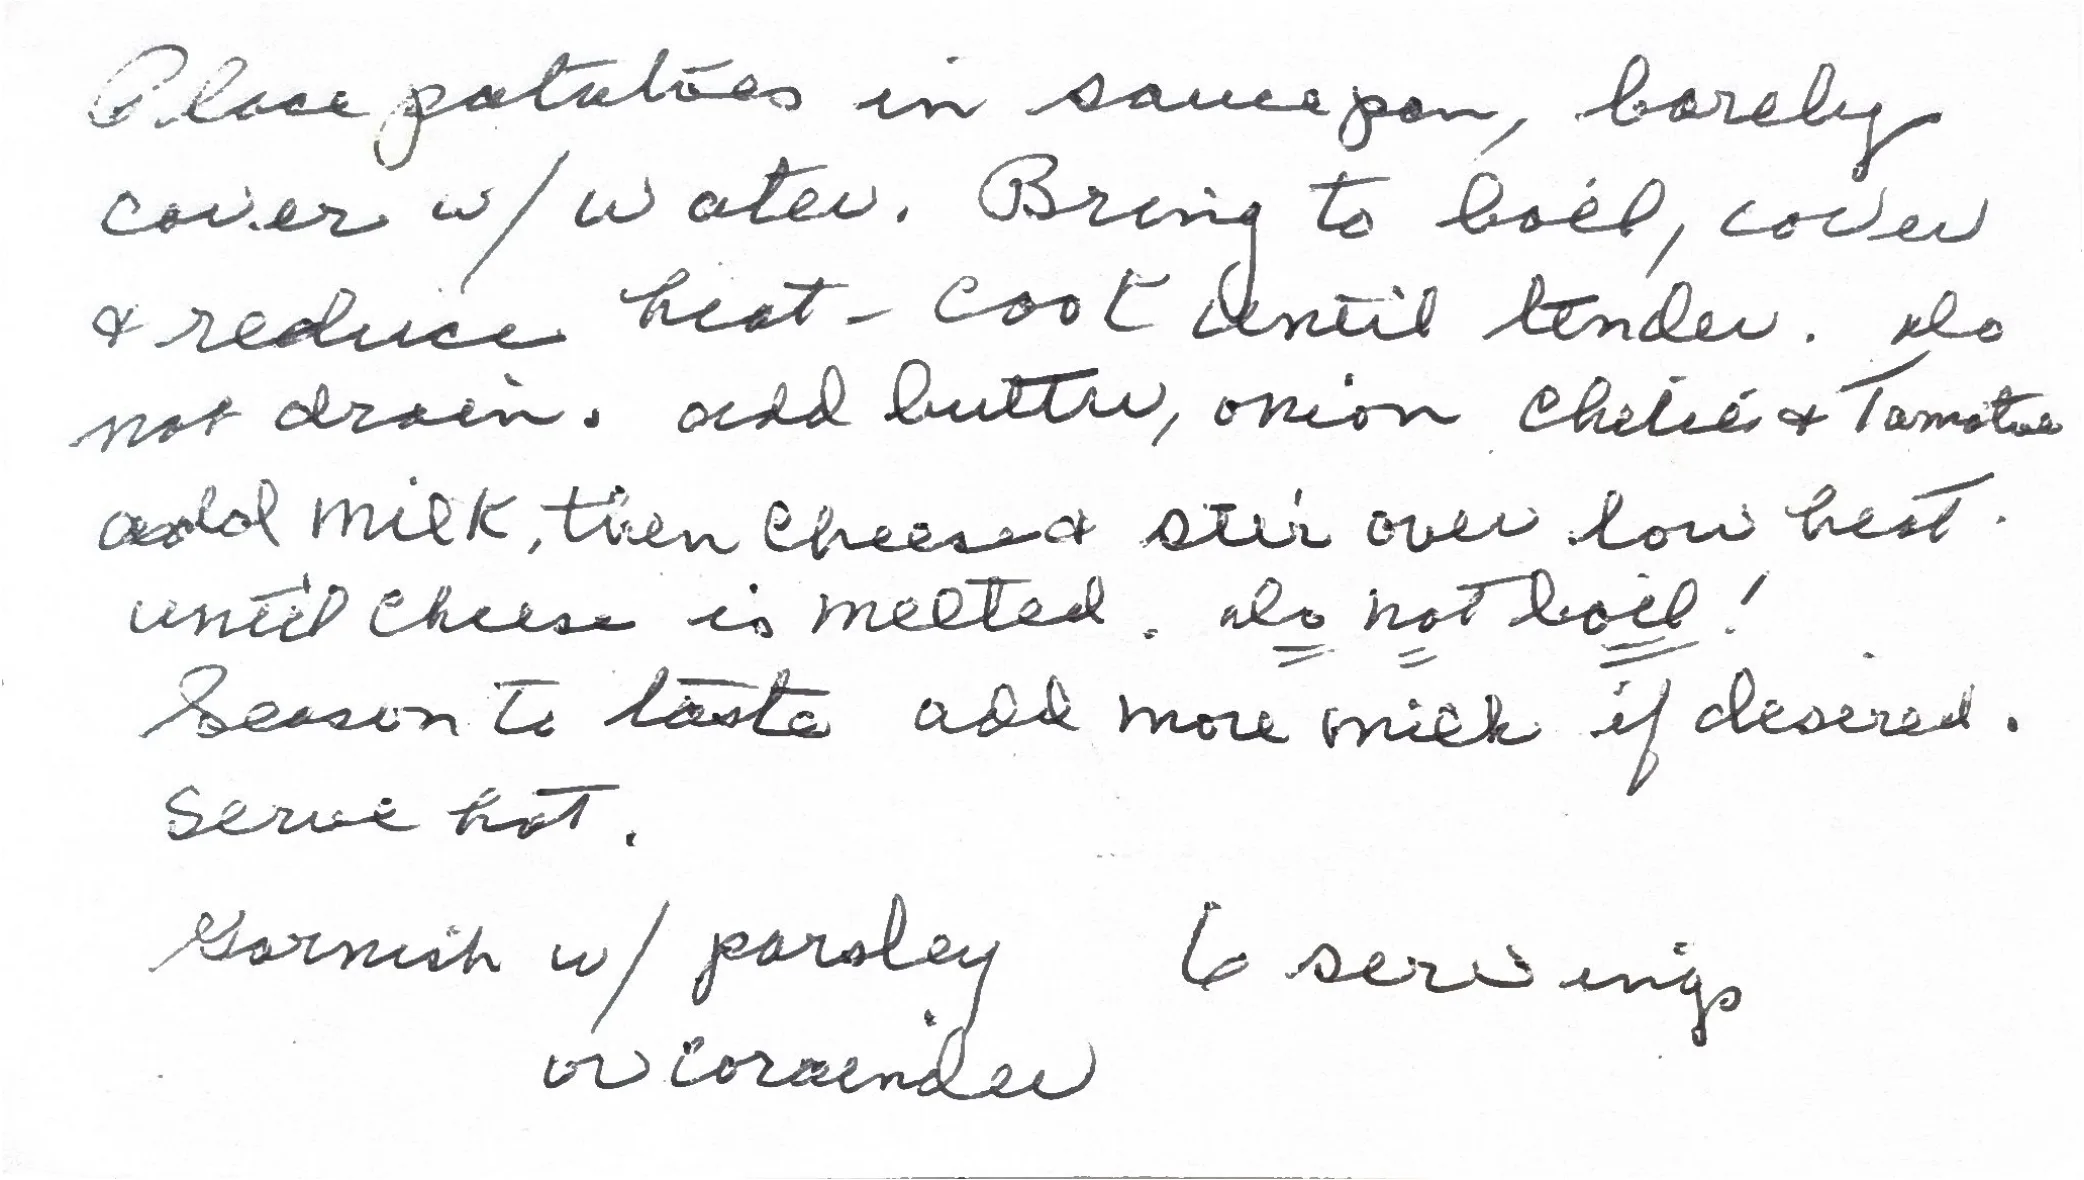 Place potatoes in saucepan, barely
cover w/ water. Bring to boil, cover
& reduce heat - cook until tender. Do
not drain. add butter, onion chilies & Tomatoe
add milk, then cheese & stir over low heat.
until cheese is melted. Do not boil!
Season to taste add more milk if desired.
Serve hot.
Garnish w/ parsley 6 servings
or corainder